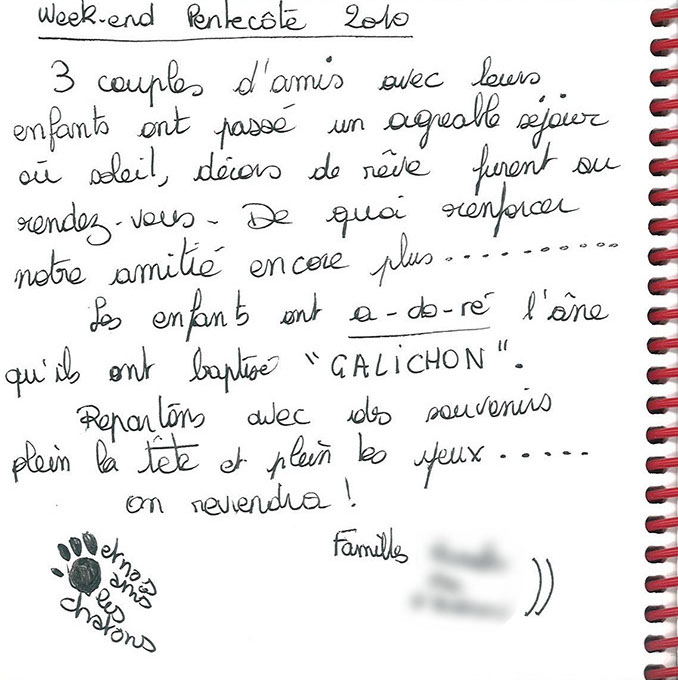 Week-end Pentecôte 2010
3 couples d'amis avec leurs
enfants ont passé un agreable séjour
où soleil, décors de rêve furent au
rendez-vous - De quoi renforcer
notre amitié encore plus............
Les enfants ont a-do-ré l'âne
qu'ils ont baptisé "GALICHON".
Repartons avec des souvenirs
plein la tête et plein les yeux.....
on reviendra !
Familles
et nos
amis
les
chatons